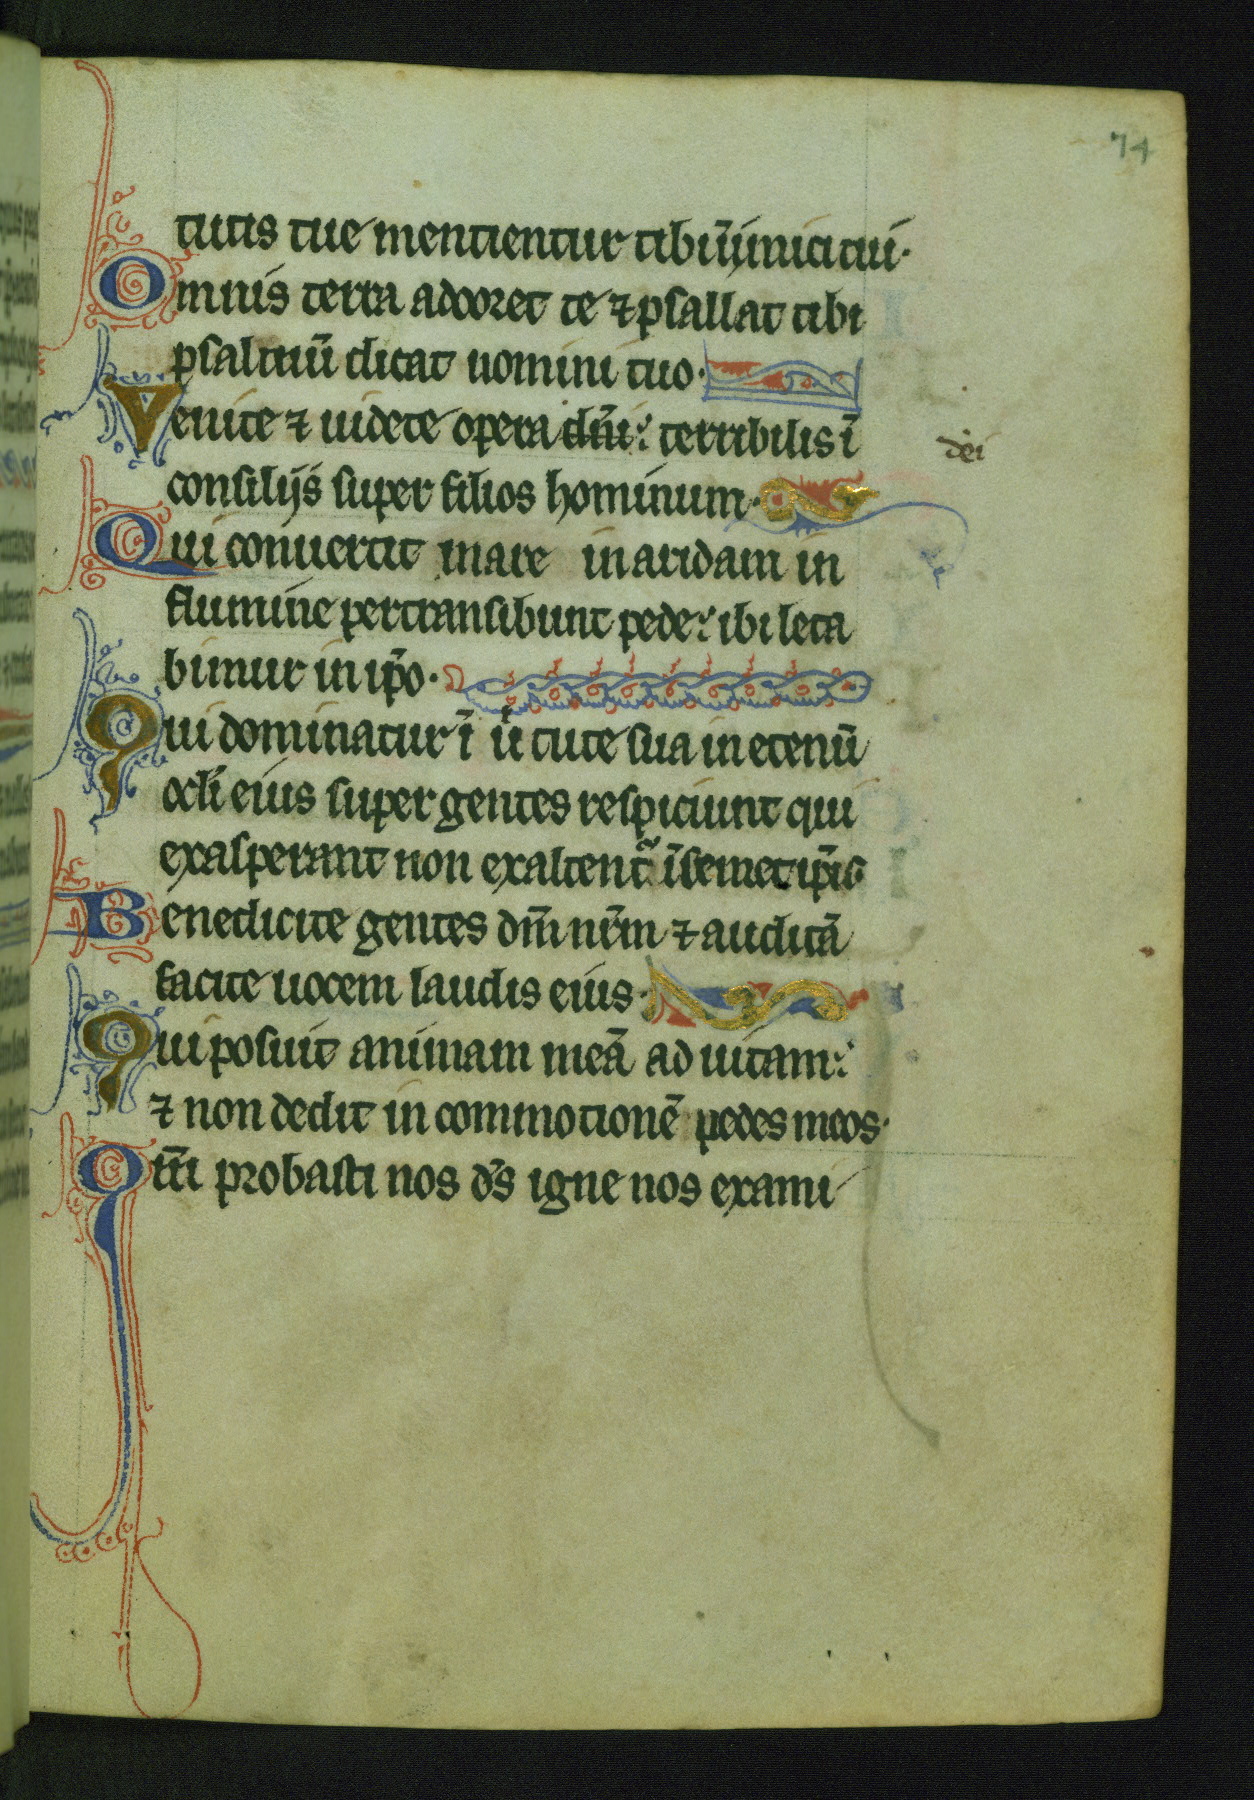 74
tutis tue mentientur tibi inimici tui·
Omnis terra adoret te ⁊ psallat tibi
psalmū dicat nomini tuo·
Venite ⁊ uidete opera dn̄i: terribilis ī
dei
consilijs super filios hominum·
Qui conuertit mare in aridam in
flumine pertransibunt pede: ibi leta
bimur in ip̄o·
Qui dominatur ī uͥtute sua in eternū
oc̄li eius super gentes respiciunt qui
exasperant non exaltent᷑ īsemet ip̄is
Benedicite gentes dn̄m nr̄m ⁊ auditā
facite uocem laudis eius·
Qui posuit animam meā ad uitam:
⁊ non dedit in commotionē pedes meos·
Qm̄ probasti nos ds̄ igne nos exami